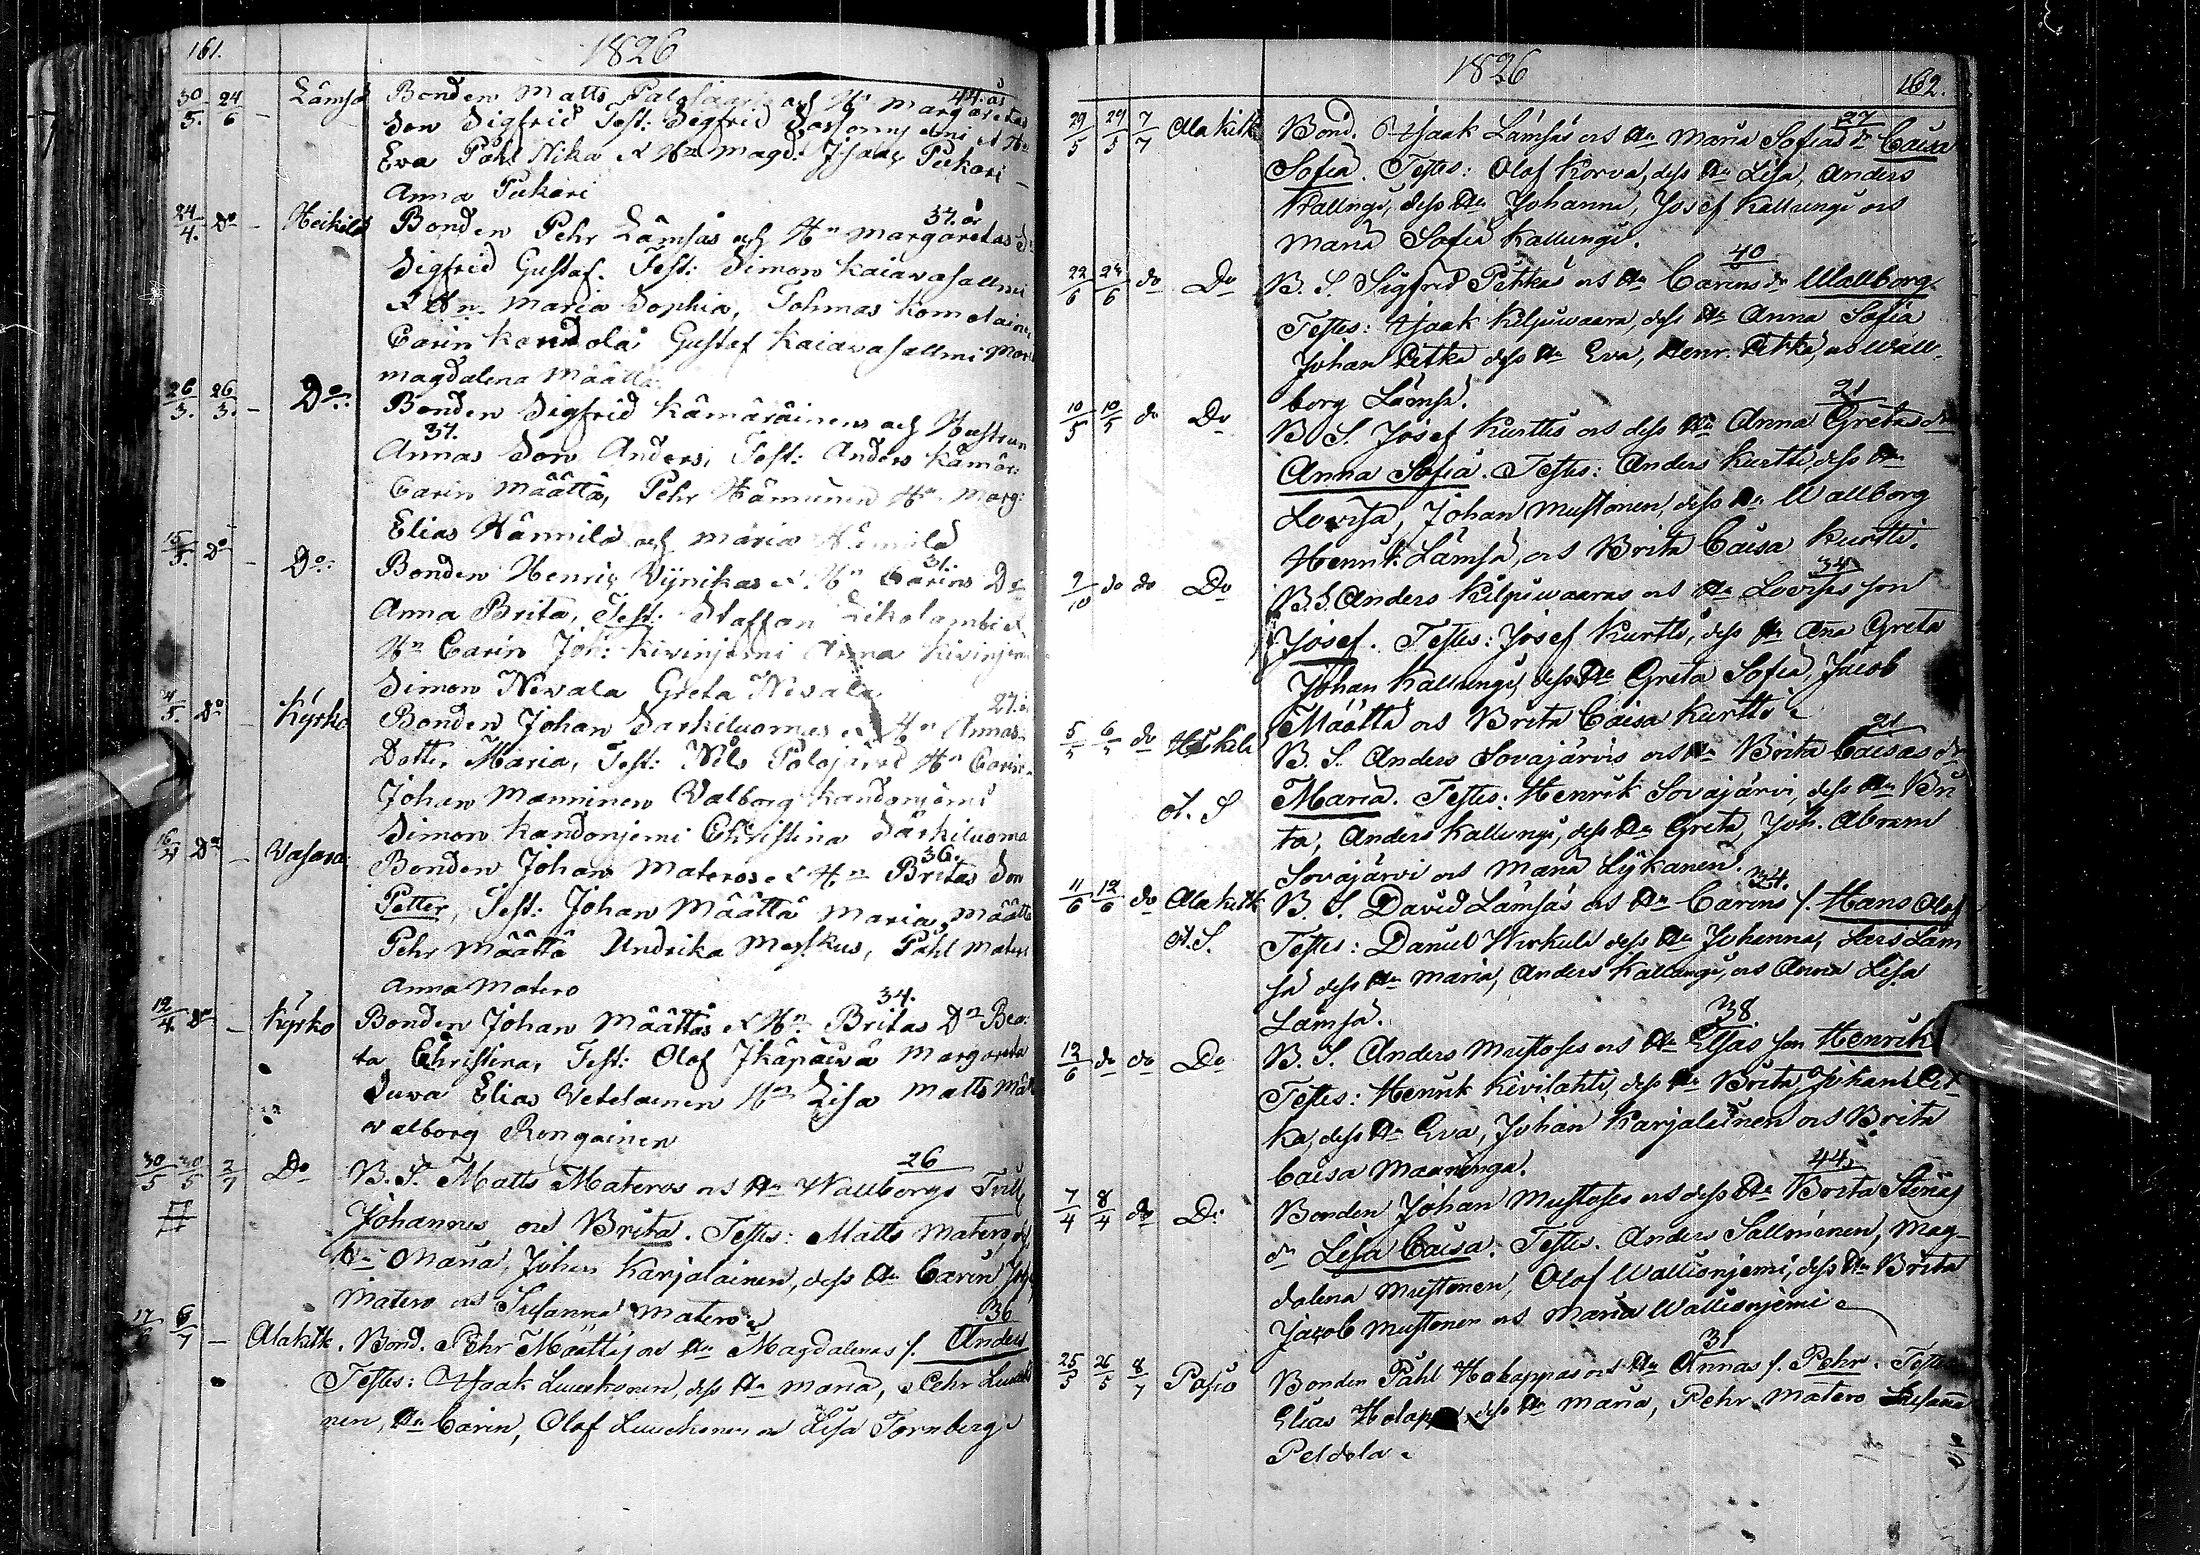 161.
1826
30/5. 24/6 - Lämsä Bonden Matts Palosaaris och Hn Margaretas 44. år
Son Sigfrid Test: Sigfrid
Eva Påhl Nika & Hn Magd: Isaac Pukari -
Anna Pukari
24/4. Do - Heikilä Bonden Pehr Lämsäs och Hn Margaretas 37. år
Sigfrid Gustaf. Test: Simon Kaiavasallmi
& Hn Maria Sophia, Tohmas
Carin Kandola Gustaf Kaiavasallmi
Magdalena Määttä
26/3. 26/3. - Do: Bonden Sigfrid Kämäräinens och Hustrun
37.
Annas Son Anders, Test: Anders Kämär:
Carin Määttä, Pehr Hämminen Hn Marg:
Elias Hännilä och Maria Hännilä
15/3. Do - Do: Bonden Henric Vijnikas & Hn Carins 31. Dr
Anna Brita, Test: Staffan Likolambi &
Hn Carin Joh: Kivinjemi Anna Kivinjem
Simon Nevala Greta Nevala
4/5. Do - Kyrko Bonden Johan Särkiluomas & Hn Annas 27.
Dotter Maria, Test: Nils Polojärvi Hn Carin
Johan Manninen Valborg Kandonjemi
Simon Kandonjemi Christina Särkiluoma
Do - Vasara: Bonden Johan Materos & Hn Britas 36. Son
Petter, Test: Johan Määttä Maria Määttä
Pehr Määttä Undrika Meskus, Påhl Matero
Anna Matero
12/4. Do - Kyrko Bonden Johan Määttäs & Hn Britas 34. Dr Bea:
ta Christina, Test: Olof Ikäpäivä Margareta
Suva Elias Vetelainen Hn Lisa Matts
Valborg Rongainen
30/5 30/5 2/7 Do B. S. Matts Materos os Hu Wallborgs 26 Tvill
Johannes och Brita. Testes: Matts Matero,
Hu Maria, Johan Karjalainen, dess Hu Carin
Matero os Susanna Matero
6/7 - Alakitk. Bond. Pehr Määttäs os Hu Magdalenas s. Anders 36
Testes: Isaak Luuskonen, dess Hu Maria, Pehr Lusko
nen, Hu Carin, Olof Luuskonen os Lisa Tornberg
1826
162.
29/5 29/5 7/7 Alakitk Bond. Isaak Lämsäs os Hu Maria Sofias 27 dr Caisa
Sofia. Testes: Olof Korva, dess Hu Lisa, Anders
Kallungi, dess Hu Johanna, Josef Kallungi os
Maria Sofia Kallungi.
22/6 24/6 do Do B. S. Sigfrid Petkas os Hu Carins 40 dr Wallborg.
Testes: Isaak Kilpivaara, dess Hu Anna Sofia
Johan Petka dess Hu Eva, Henr. Petka, os Wall-
borg Lämsä.
10/5 10/5 do Do B. S. Josef Kurttis os dess Hu Anna Gretas 21 dr
Anna Sofia. Testes: Anders Kurtti, dess Hu
Lovisa, Johan Mustonen, dess Hu Wallborg
Henrik Lämsä, os Brita Caisa Kurtti.
9/10 do do Do B. S. Anders Kilpivaaras os Hu Lovisas 34 son
Josef. Testes: Josef Kurtti, dess Hu Ana Greta
Johan Kallungi, dess Hu Greta Sofia, Jacob
Määttä os Brita Caisa Kurtti
5/5 6/5 do Heikilä B. S. Anders Sovajärvis os Hu Brita Caisas 21 dr
A. S Maria. Testes: Henrik Sovajärvi, dess Hu Bri
ta, Anders Kallungi, dess Hu Greta, Joh. Abram
Sovajärvi os Maria Lykanen.
11/6 12/6 do Alakitk B. S. David Lämsäs os Hu Carins 34. s. Hans Olof
A. S. Testes: Daniel Wirkula dess Hu Johanna, Lars Läm
sä dess Hu Maria, Anders Kallungi, os Anna Lisa
Lämsä.
12/6 do do Do B. S. Anders Mustoses os Hu Elsas 38. son Henrik
Testes: Henrik Kivilahti, dess Hu Brita, Johan Pet
ka, dess Hu Eva, Johan Karjalainen os Brita
Caisa Maaninga.
7/4 8/4 do Do Bonden Johan Mustoses os dess Hu Brita Stinas 44
dr Lisa Caisa. Testes. Anders Sallminen, Mag-
dalena Mustonen, Olof Wallionjemi, dess Hu Brita
Jacob Mustonen os Maria Wallionjemi
25/5 26/5 8/7 Posio Bonden Påhl Holappas os Hu Annas 31 s. Pehr. Testes
Elias Holappa dess Hu Maria, Pehr Matero Susana
Peldola